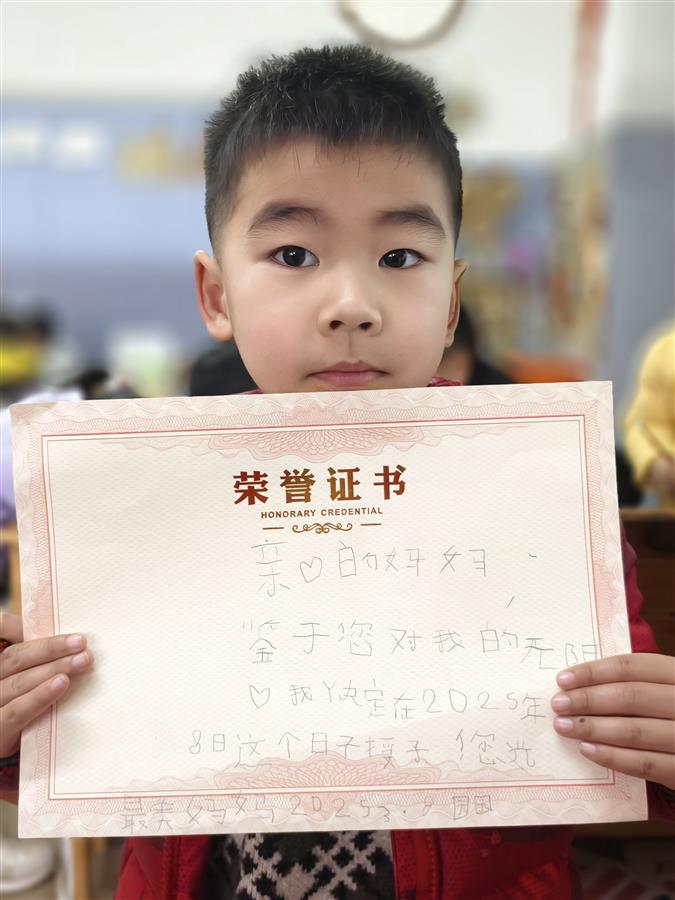 荣誉证书
HONORARY CREDENTIAL
亲♡的妈妈、
鉴于您对我的无
♡我决定在2025年
8日这个日子授予您
最美妈妈20253.8